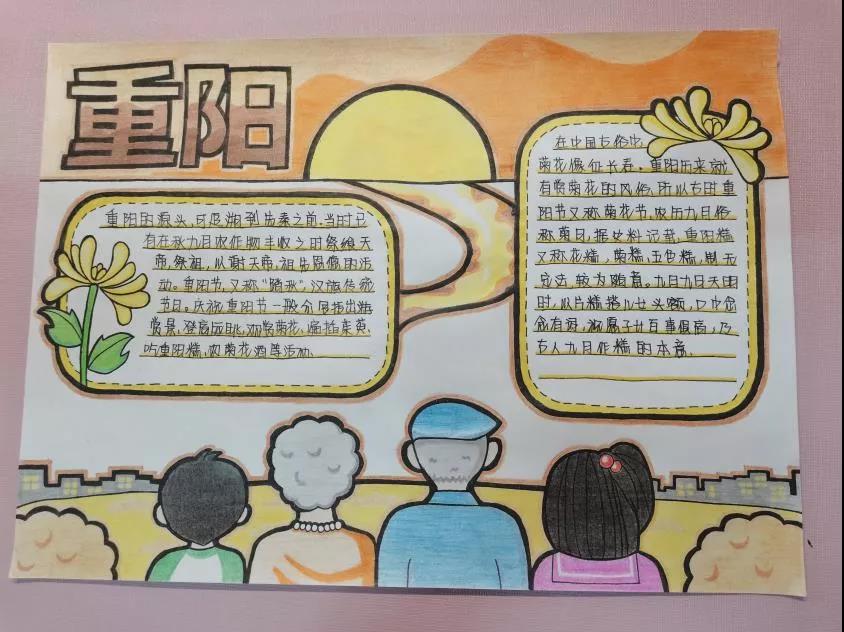 重阳
重阳的源头,可追溯到先秦之前.当时已
有在秋九月农作物丰收之时祭飨天
帝,祭祖,以谢天帝,祖先恩德的活
动。重阳节,又称"踏秋",汉族传统
节日。庆祝重阳节一般会包括出游
赏景,登高远眺,观赏菊花,遍插茱萸,
吃重阳糕,饮菊花酒等活动.
在中国古俗中,
菊花像征长寿.重阳历来就
有赏菊花的风俗,所以古时重
阳节又称菊花节,农历九月俗
称菊月,据史料记载,重阳糕
又称花糕,菊糕,五色糕,制无
定法,较为随意。九月九日天明
时,以片糕搭儿女头额,口中念
念有词,祝愿子女百事俱高,乃
古人九月作糕的本意.